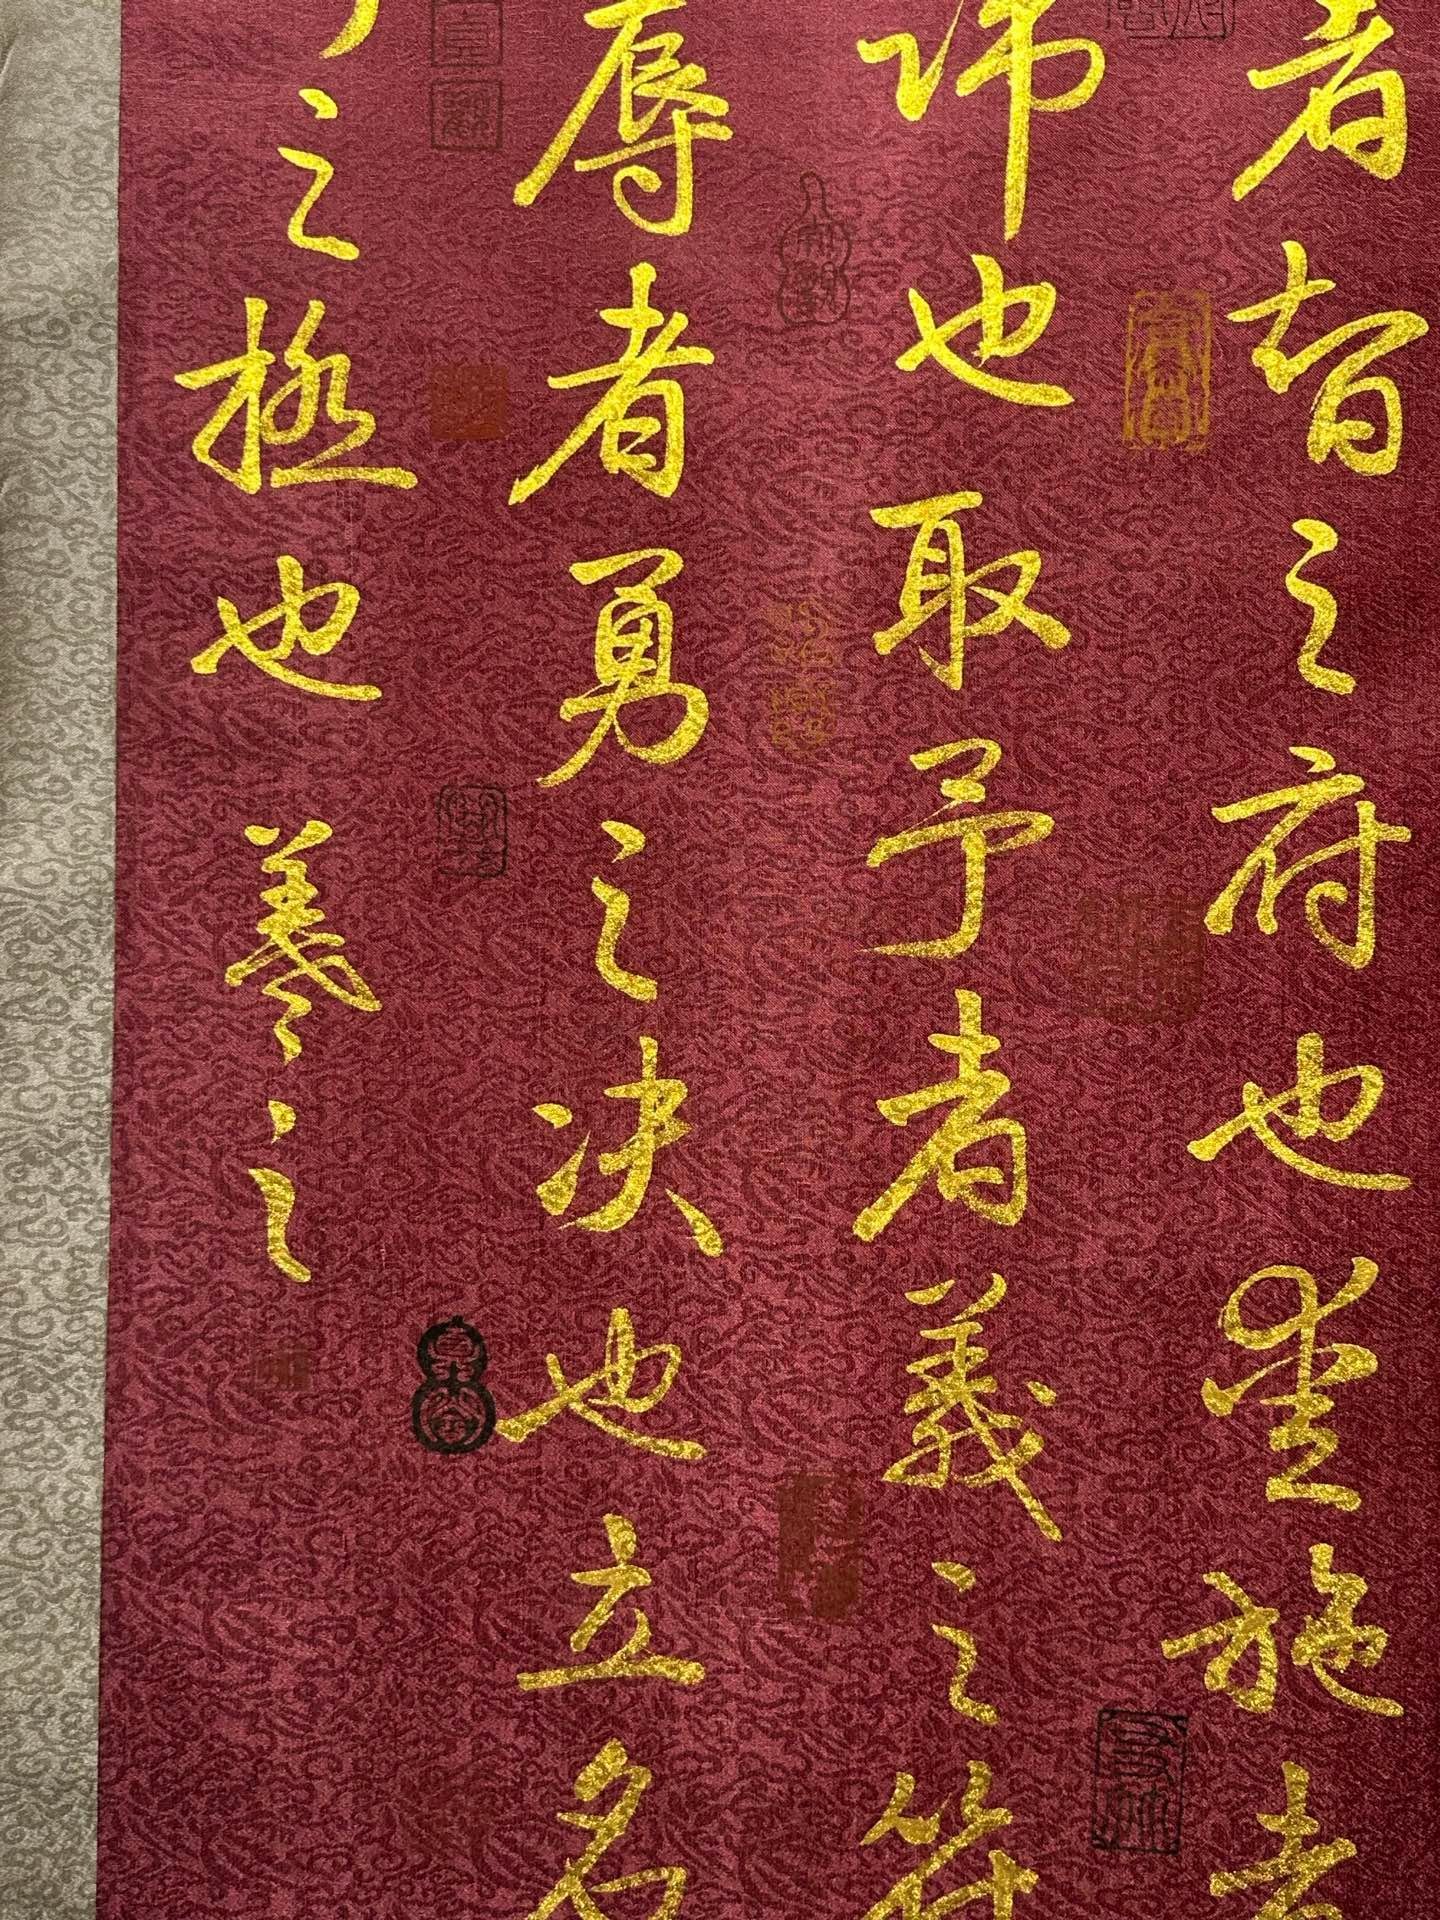 者智之府也愛施者
端也取予者義之符
辱者勇之决也立名
之極也羲之